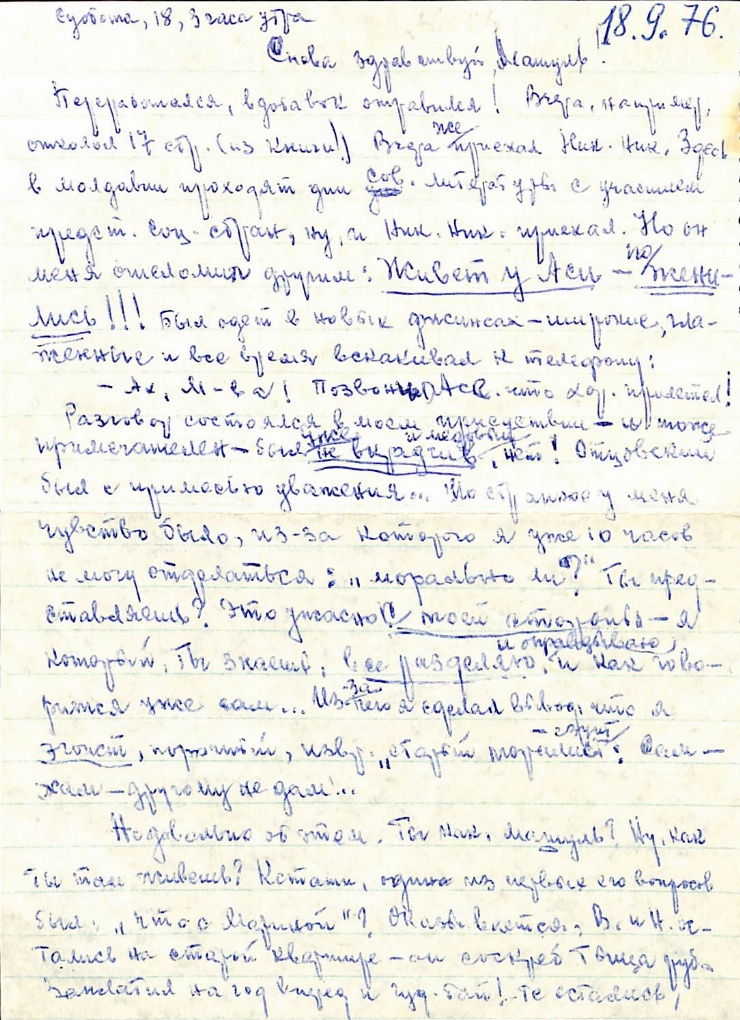 Суббота, 18, 3 часа утра
18.9.76.
Снова здравствуй, Машуль!
Переработался, вдобавок отравился! Вчера, например,
отколол 17 стр. (из книги!) Вчера же приехал Ник. Ник. Здесь
в Молдавии проходят дни сов. литературы с участием
предст. соц. стран, ну, и Ник. Ник. приехал. Но он
меня ошеломил другим: Живет у Аси – по/жени-
лись!!! Был одет в новых джинсах – широкие, гла-
женные и все время вскакивал к телефону:
– Ах, М-ва! Позвоню Асе, что хор. прилетел!
Разговор состоялся в моем присутствии – и тоже
примечателен – был уже не вкрадчив, нет! Отцовский
был с примесью уважения... Но странное у меня
чувство было, из-за которого я уже 10 часов
не могу отделаться: "морально ли?" Ты пред-
ставляешь? Это ужасно с моей стороны – я
который, ты знаешь, все разделяю и оправдываю, и как гово-
рится уже сам... Из-за чего я сделал вывод, что я
эгоист, порочный, "старый: Сам –
жам – другому не дам"...
Но довольно об этом. Ты как, Машуль? Ну, как
ты там живешь? Кстати, один из первых его вопросов
был: "Что с Мариной"? Оказывается, В. и Н. ос-
тались на старой квартире – он соскреб тыща руб.
Заплатил на год вперед и гуд-бай! Те остались,